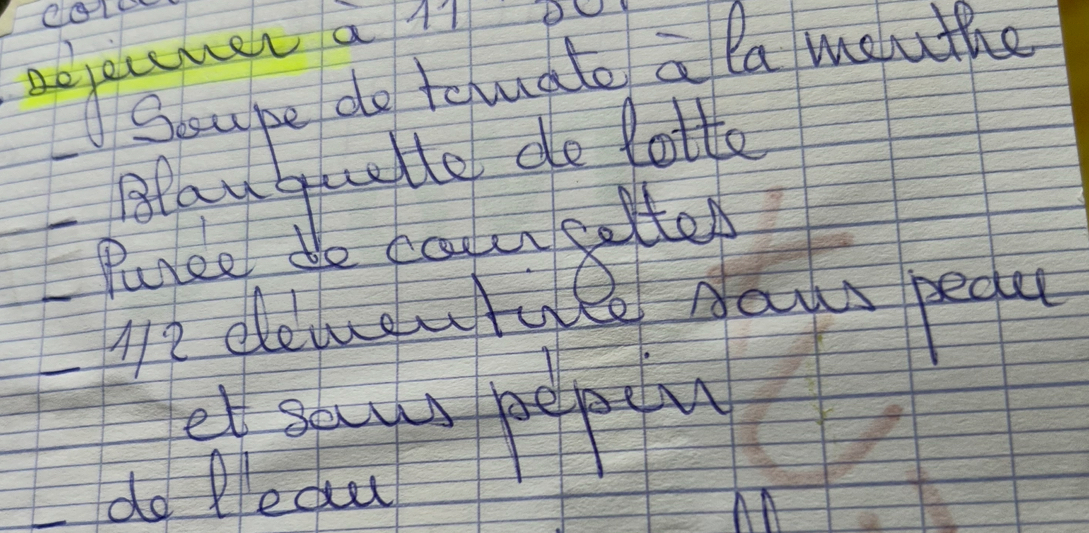 Déjeuner à 11
- Soupe de tomate à la menthe
- Blanquette de lotte
- Purée de courgettes
- 1/2 clémentine sans peau
et sans pépin
- de l'eau